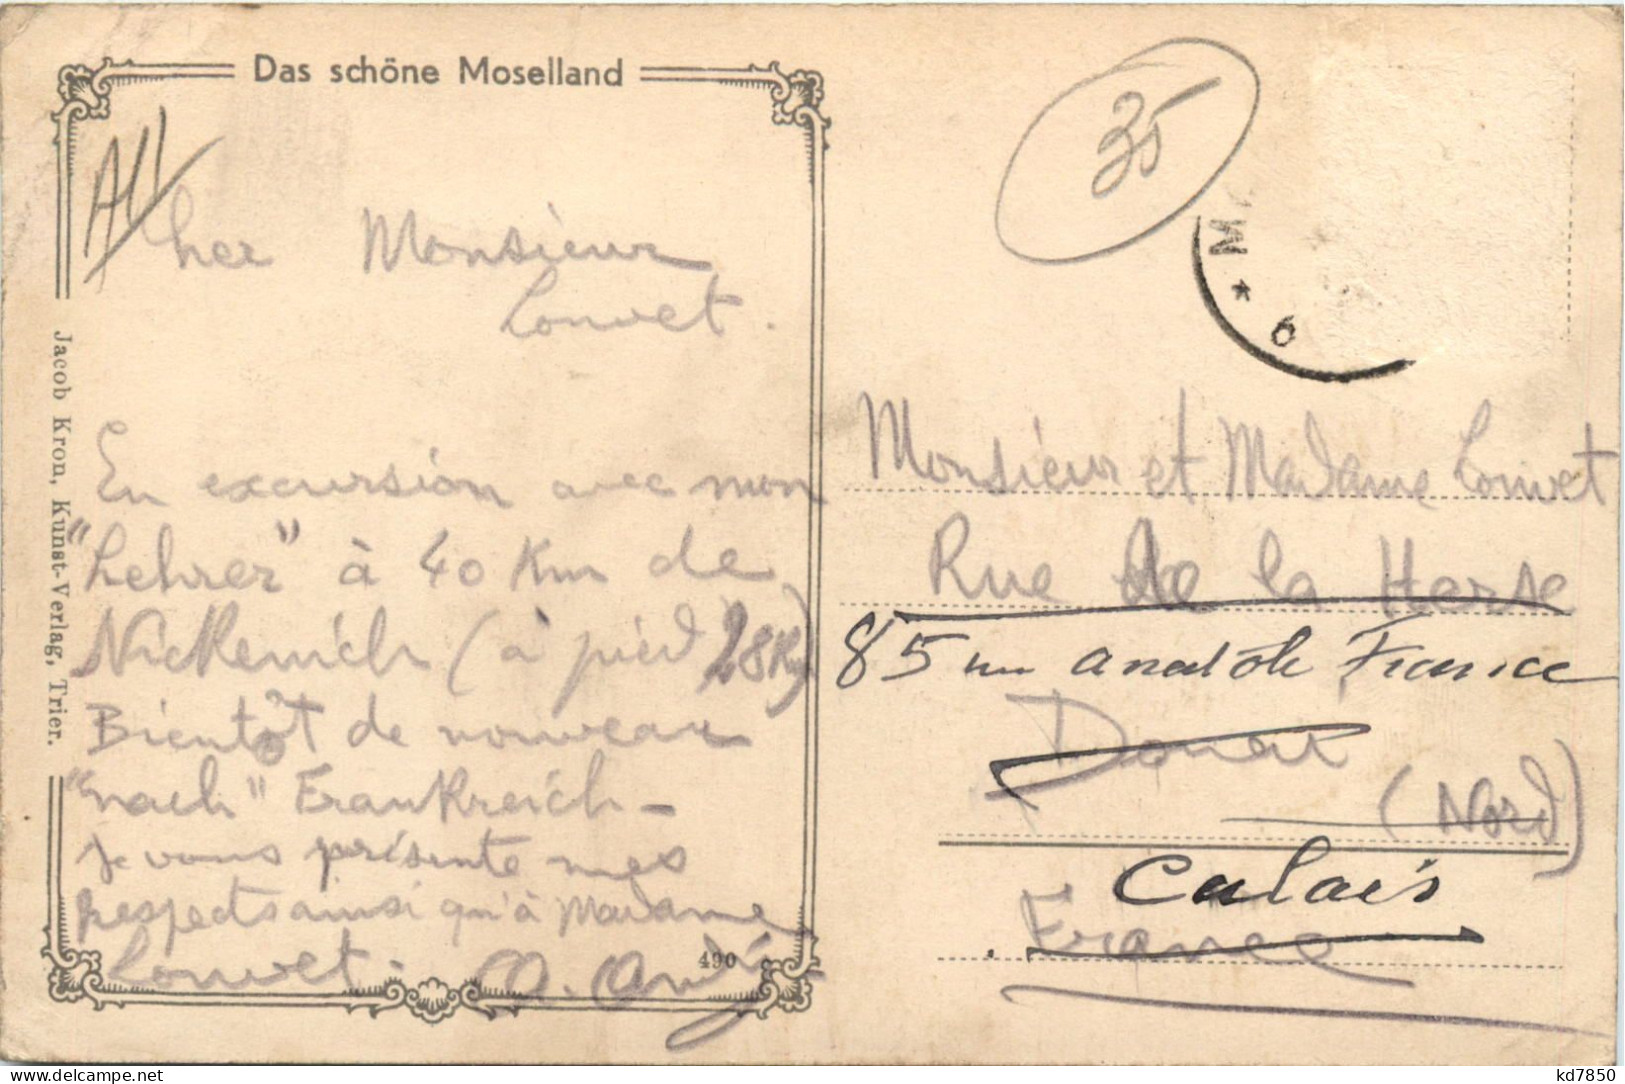 Das schöne Moselland
35
M
* 6
Cher Monsieur
Louvet.
En excursion avec mon
"Lehrer" à 40 Km de
Nickenich (à pied 28 Km)
Bientôt de nouveau
"nach" Frankreich -
Je vous présente mes
respects ainsi qu'à Madame
Louvet.
490
Jacob Kron, Kunst-Verlag, Trier.
Monsieur et Madame Louvet
Rue de la Herse
85 rue Anatole France
Douai
(Nord)
Calais
France
kd7850